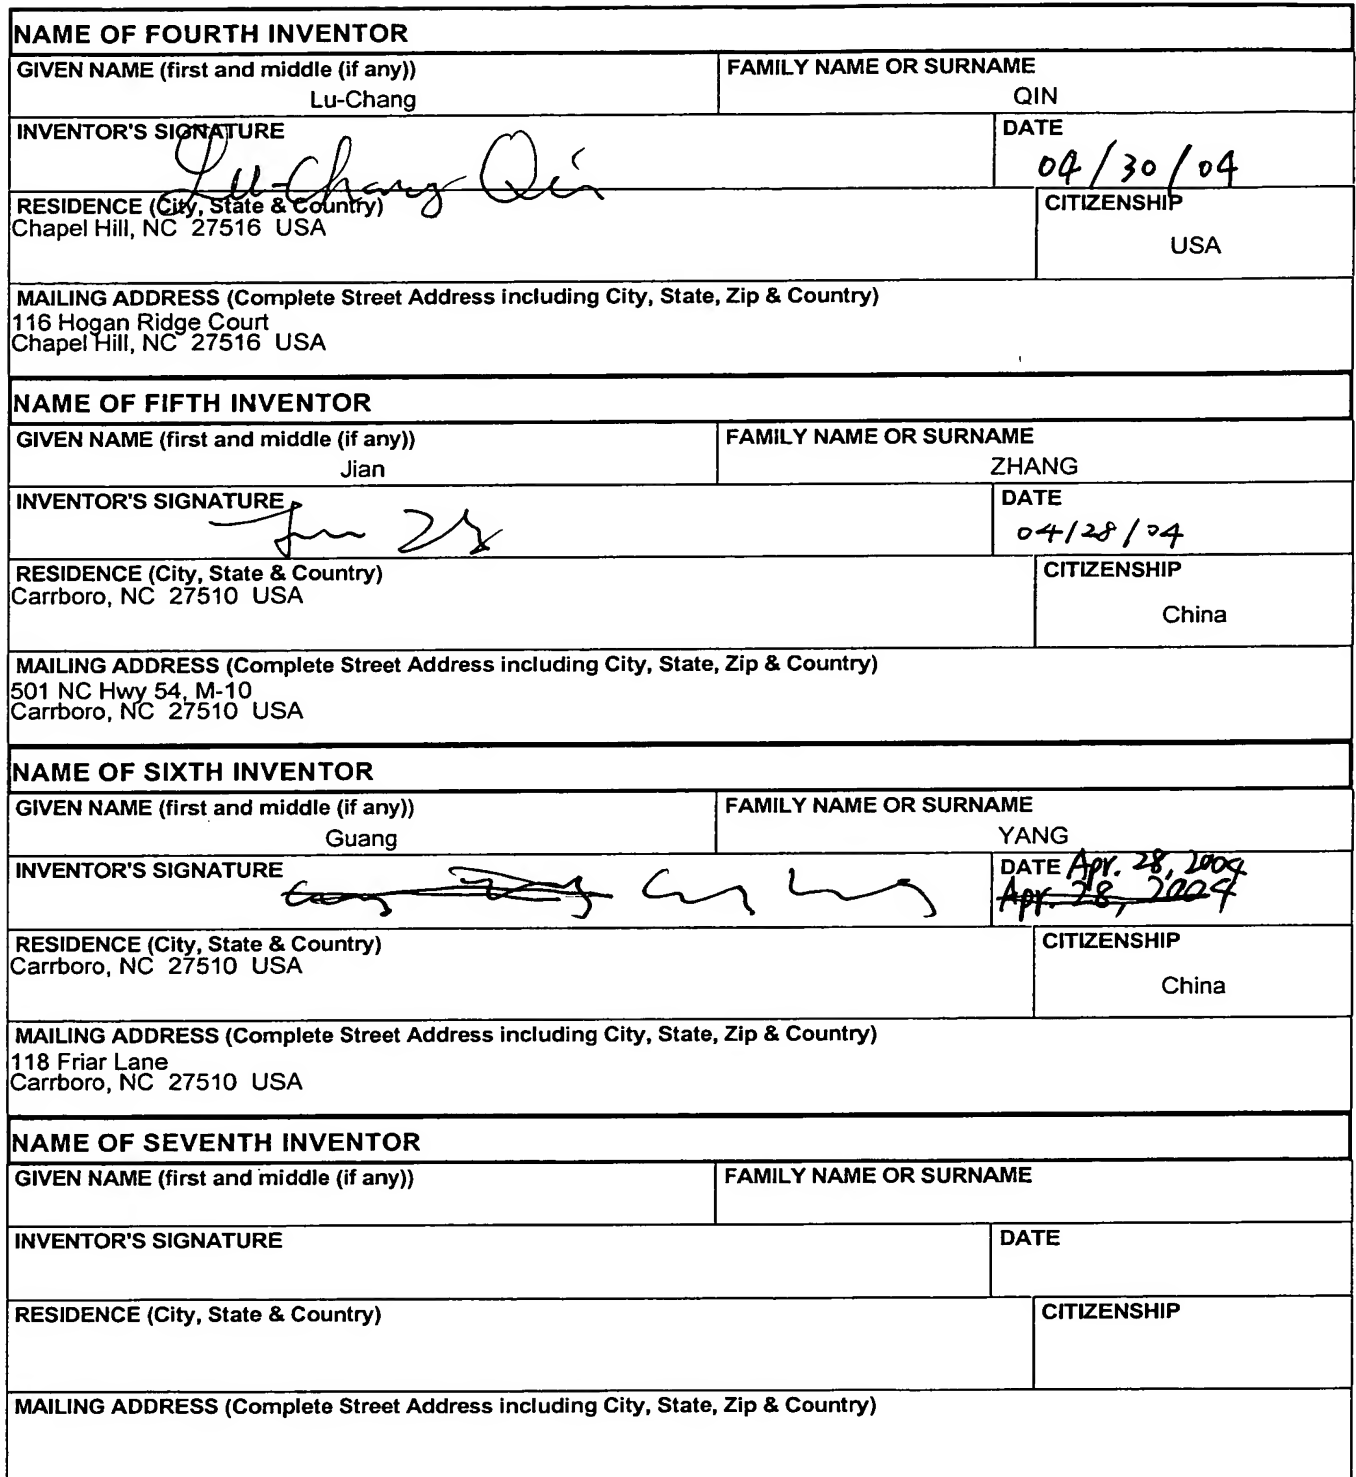 NAME OF FOURTH INVENTOR
GIVEN NAME (first and middle (if any)) FAMILY NAME OR SURNAME
Lu-Chang QIN
INVENTOR'S SIGNATURE DATE
Lu-Chang Qin 04/30/04
RESIDENCE (City, State & Country) CITIZENSHIP
Chapel Hill, NC 27516 USA
USA
MAILING ADDRESS (Complete Street Address including City, State, Zip & Country)
116 Hogan Ridge Court
Chapel Hill, NC 27516 USA
NAME OF FIFTH INVENTOR
GIVEN NAME (first and middle (if any)) FAMILY NAME OR SURNAME
Jian ZHANG
INVENTOR'S SIGNATURE DATE
04/28/04
RESIDENCE (City, State & Country) CITIZENSHIP
Carrboro, NC 27510 USA
China
MAILING ADDRESS (Complete Street Address including City, State, Zip & Country)
501 NC Hwy 54, M-10
Carrboro, NC 27510 USA
NAME OF SIXTH INVENTOR
GIVEN NAME (first and middle (if any)) FAMILY NAME OR SURNAME
Guang YANG
INVENTOR'S SIGNATURE DATE Apr. 28, 2004
Apr. 28, 2004
RESIDENCE (City, State & Country) CITIZENSHIP
Carrboro, NC 27510 USA
China
MAILING ADDRESS (Complete Street Address including City, State, Zip & Country)
118 Friar Lane
Carrboro, NC 27510 USA
NAME OF SEVENTH INVENTOR
GIVEN NAME (first and middle (if any)) FAMILY NAME OR SURNAME
INVENTOR'S SIGNATURE DATE
RESIDENCE (City, State & Country) CITIZENSHIP
MAILING ADDRESS (Complete Street Address including City, State, Zip & Country)